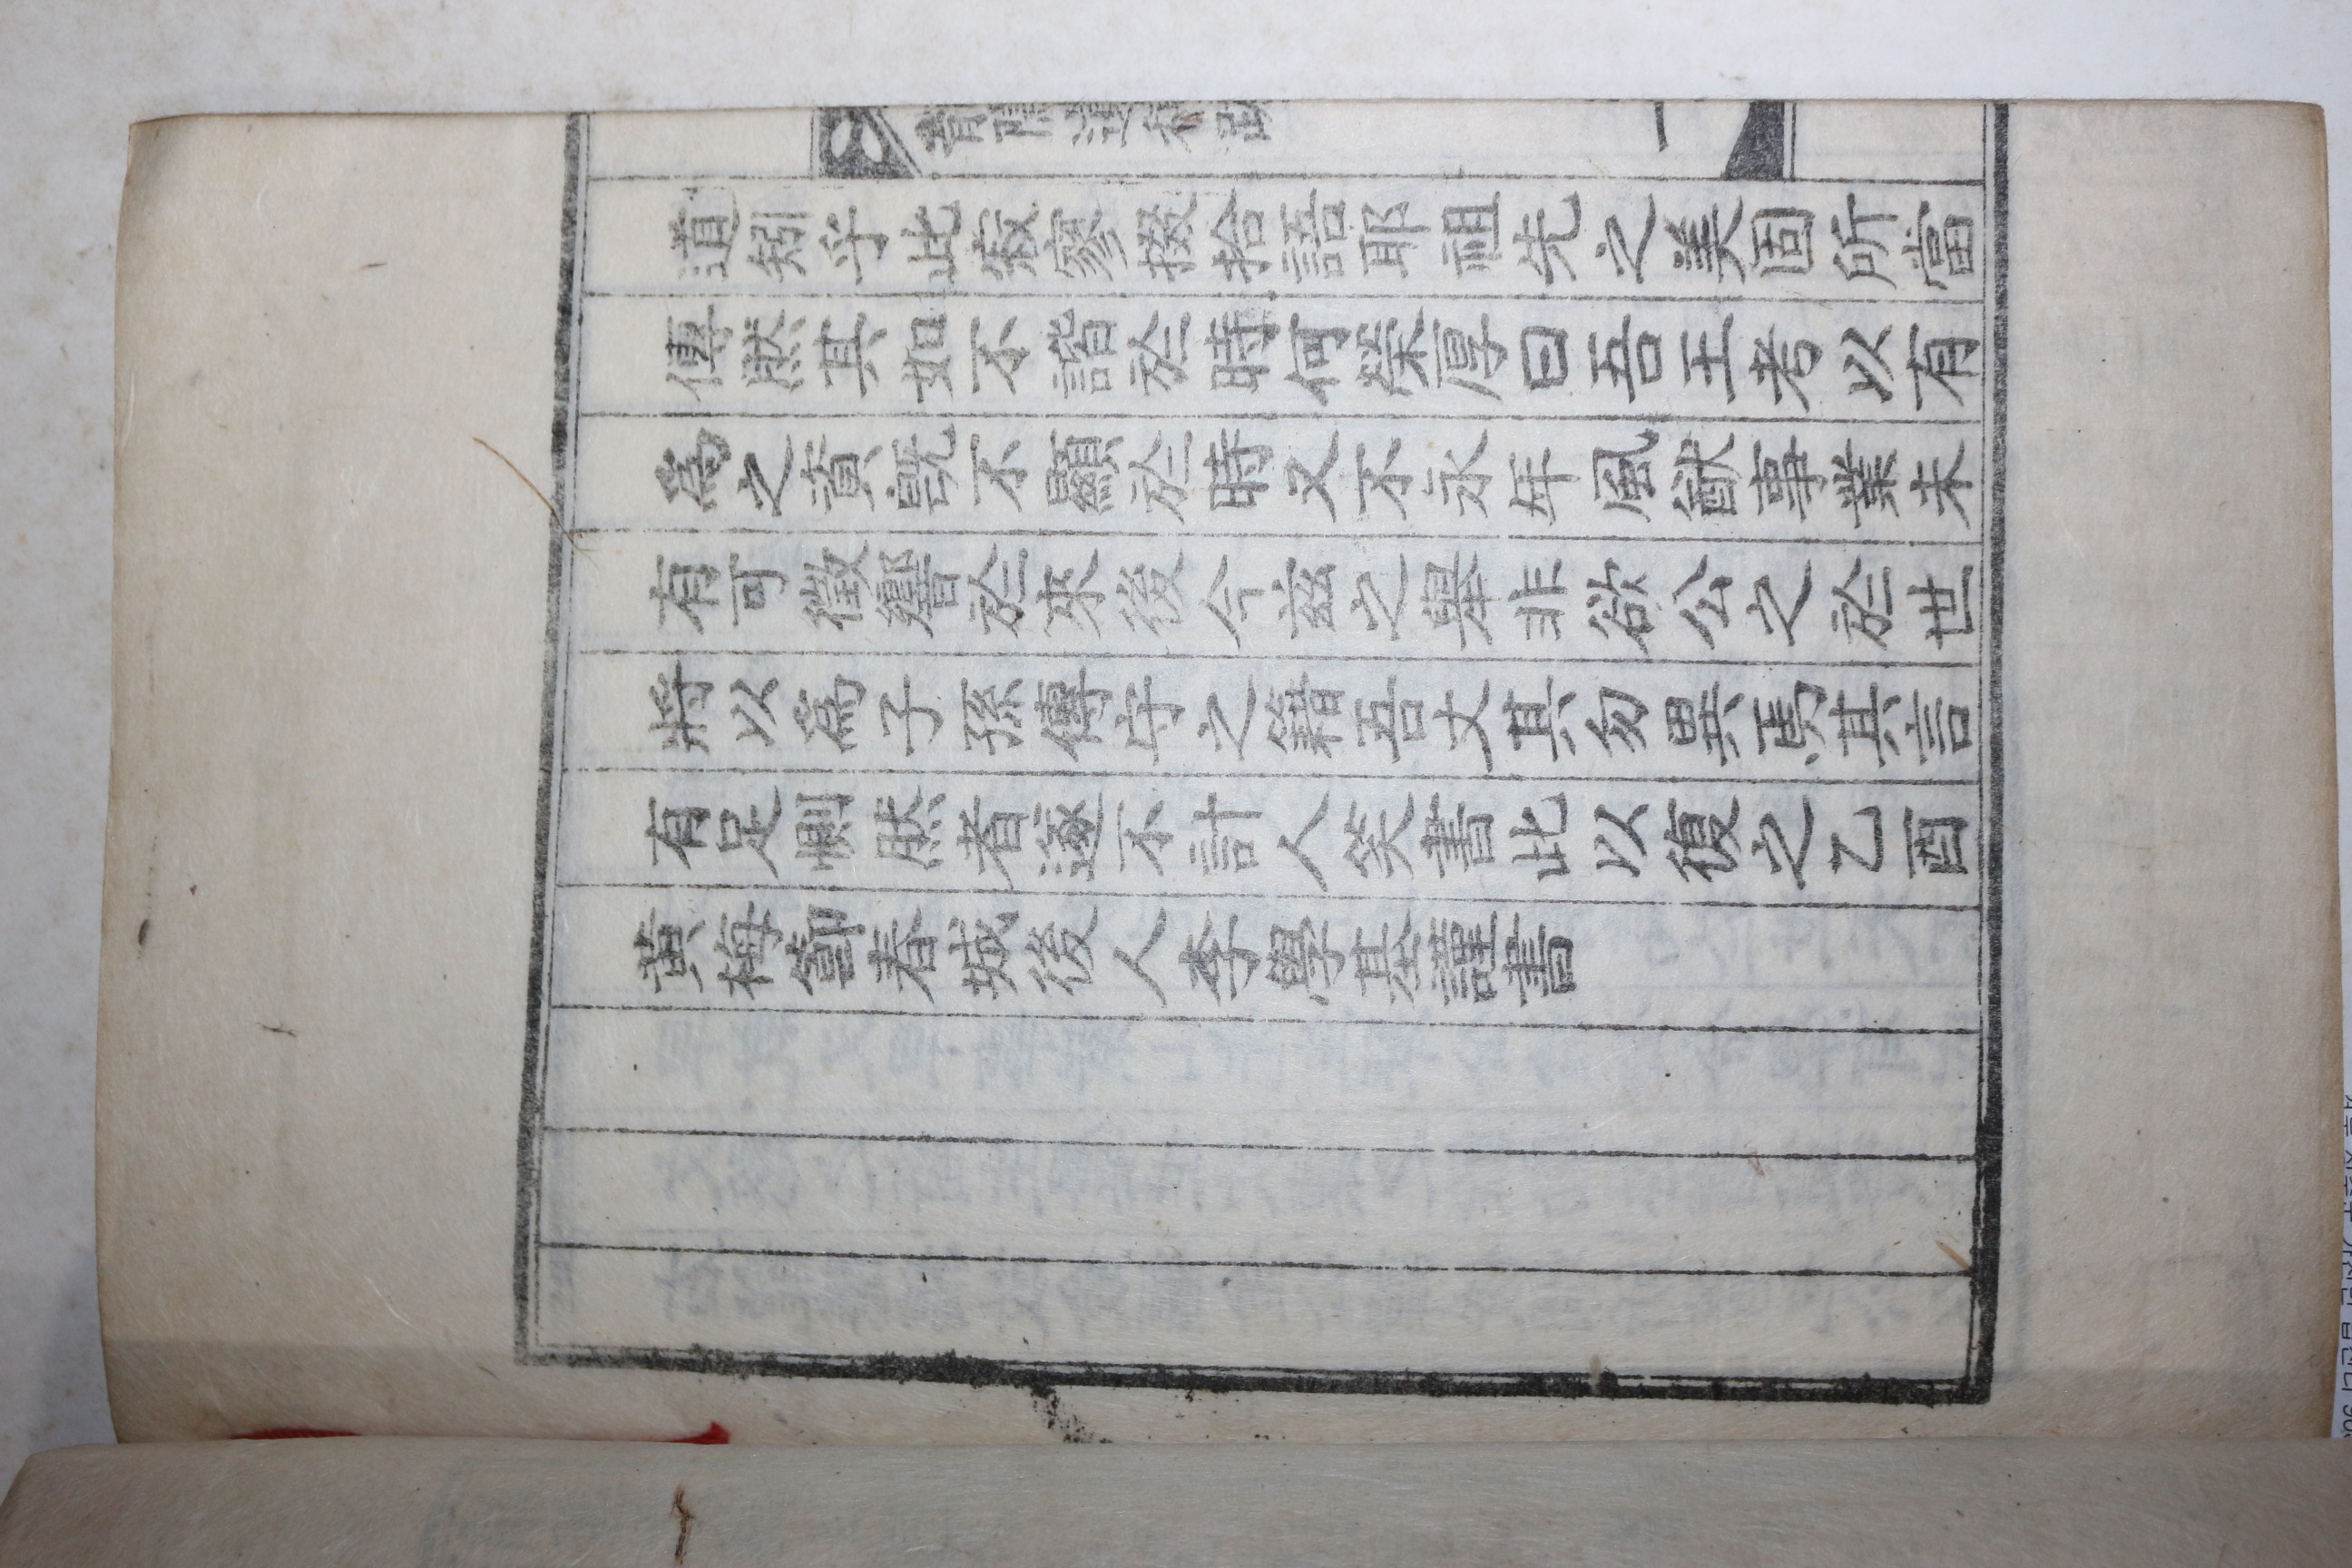 道矧乎此寂寥掇拾語耶祖先之美固所當
傳然其如不諧於時何榮厚曰吾王考以有
爲之資旣不顯於時又不永年風猷事業未
有可徵響於來後今玆之舉非欲公之於世
將以爲子孫傳守之籍吾丈其勿異焉其言
有足惻然者遂不計人笑書此以復之乙酉
黄梅節春城後人李學基謹書
一